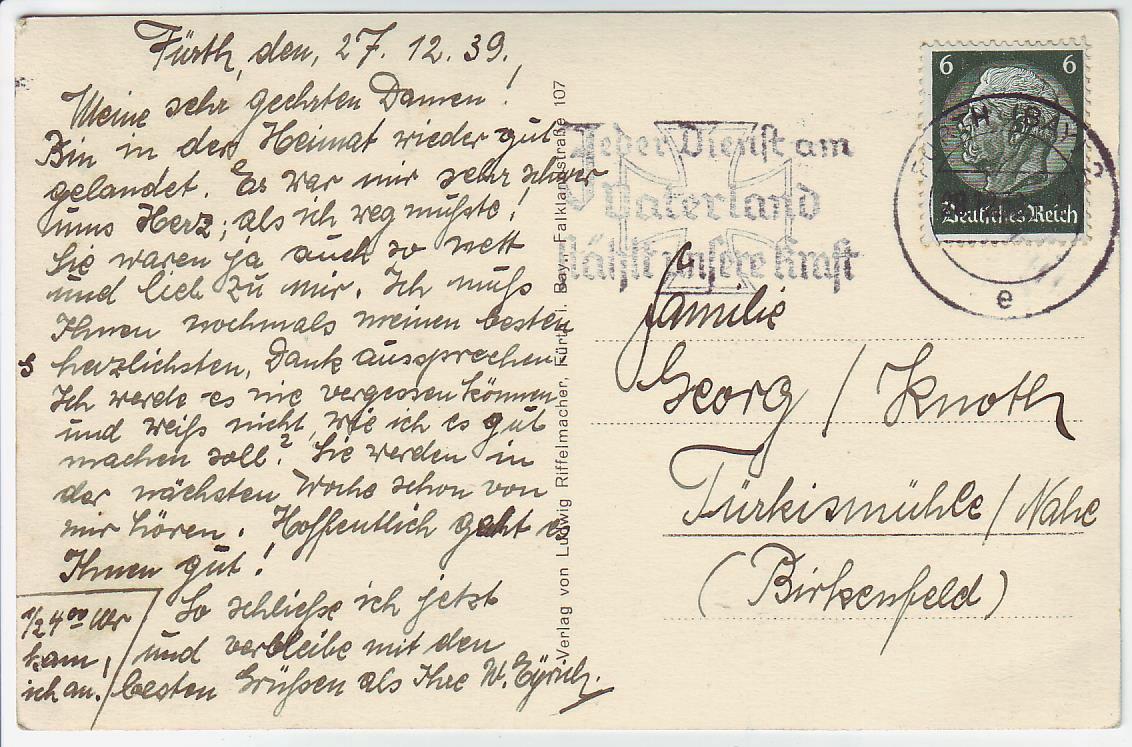 Fürth, den, 27. 12. 39.
Meine sehr geehrten Damen!
Bin in der Heimat wieder gut
gelandet. Es war mir sehr schwer
ums Herz; als ich weg mußte!
Sie waren ja auch so nett
und lieb zu mir. Ich muß
Ihnen nochmals meinen besten
herzlichsten, Dank aussprechen.
Ich werde es nie vergessen können
und weiß nicht, wie ich es gut
machen soll? Sie werden in
der nächsten Woche schon von
mir hören. Hoffentlich geht es
Ihnen gut!
So schließe ich jetzt
und verbleibe mit den
besten Grüßen als Ihre W.
1/2 4 00 Uhr
kam,
ich an.
Verlag von Ludwig Riffelmacher, Fürth i. Bay., Falklandstraße 107
Jeder Dienst am
Vaterland
stählt unsere Kraft
6 6
Deutsches Reich
e
Familie
Georg / Knoth
Türkismühle / Nahe
(Birkenfeld)